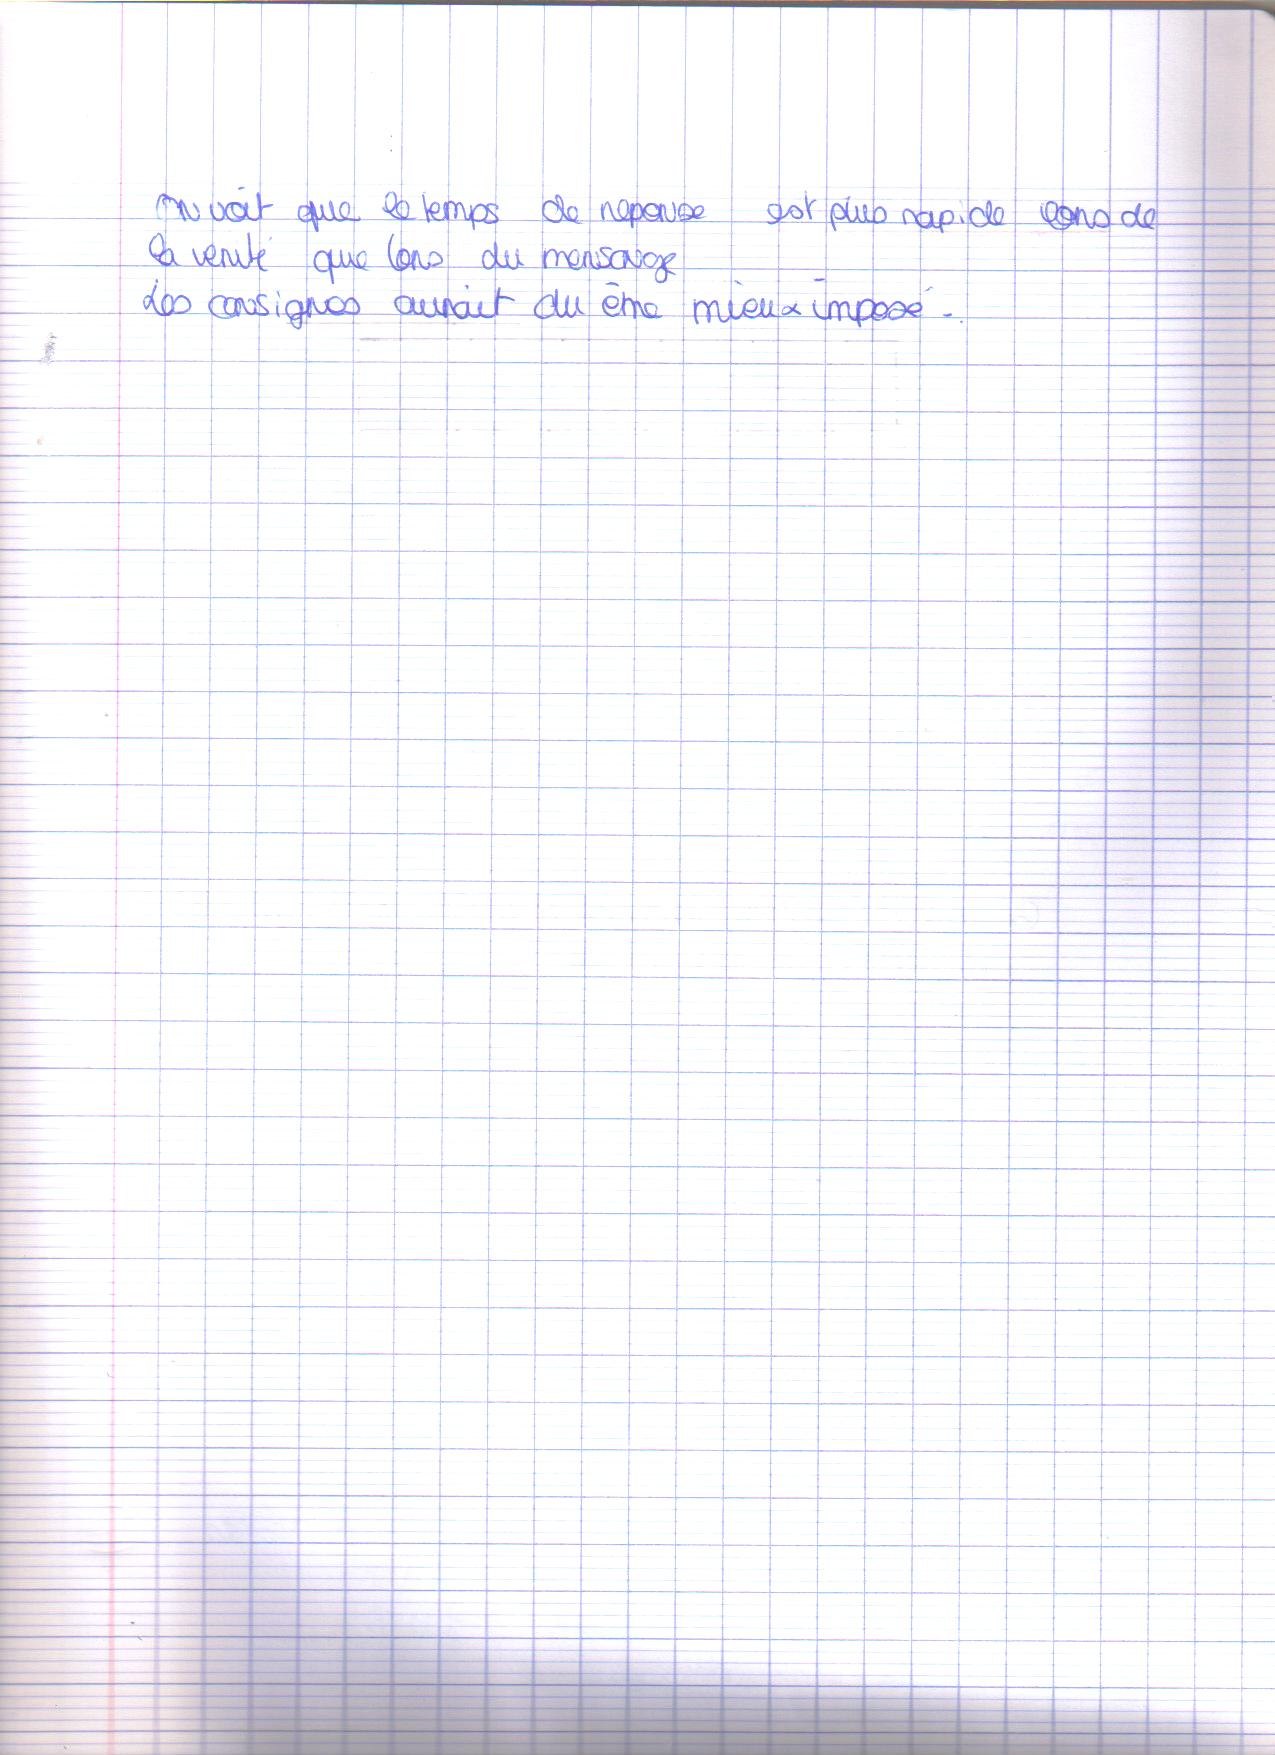 On voit que le temps de reponse est plus rapide lors de
la verité que lors du mensonge
Les consignes aurait du être mieux imposé.